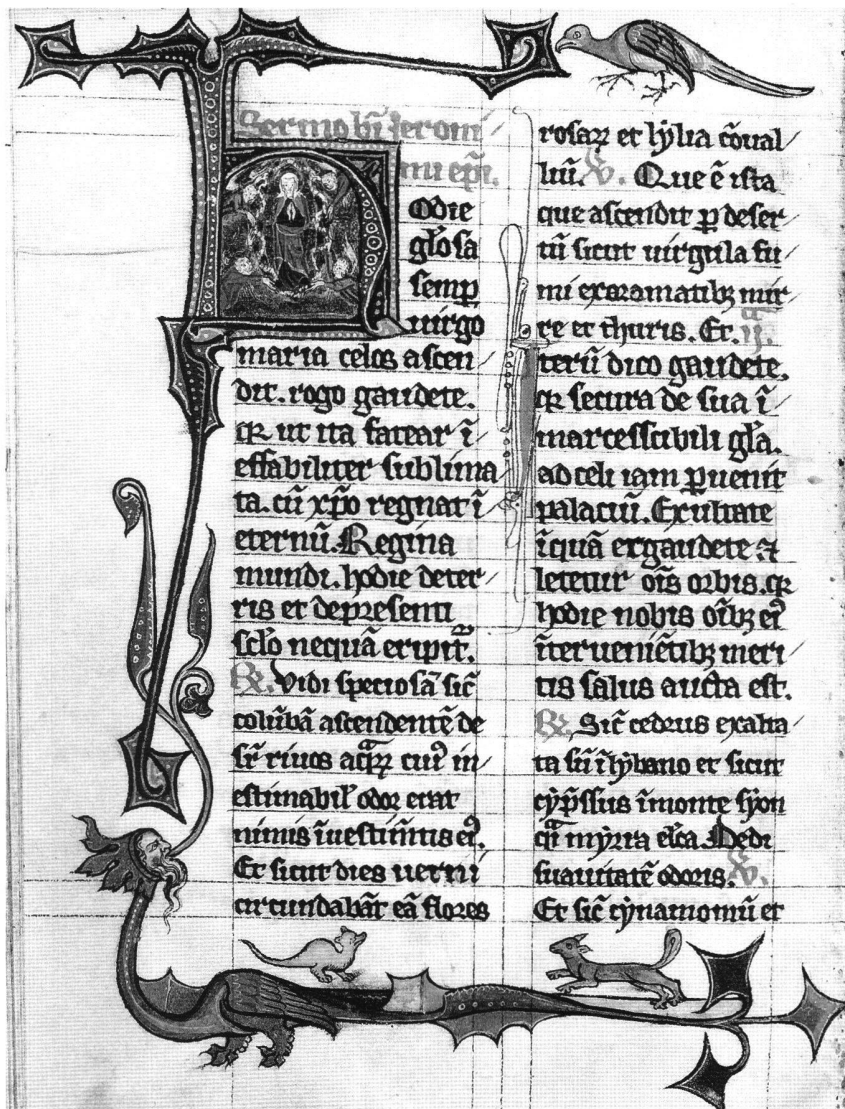 Sermo bi Jeroni
mi epi.
Odie
glosa
semp
uirgo
maria celos ascen
dit. rogo gaudete.
qr ut ita fatear ĩ
effabiliter sublima
ta. cũ xp̃o regnat ĩ
eternũ. Regina
mundi. hodie deter
ris et depresenti
sclo nequã eripit᷑.
℟. Vidi speciosã sic̃
colũbã ascendentẽ de
sr̃ riuos aqꝝ cui᷑ in
estimabil᷑ odor erat
nimis ĩuestim̃tis ei᷑.
Et sicut dies uerni
circundabãt eã flores
rosaꝝ et lẏlia c̃oual
liũ. ℣. Que ẽ ista
que ascendit p̱ deser
tũ sicut uirgula fu
mi exaromatibꝫ mir
re et thuris. Et. ij.
terũ dico gaudete.
qr secura de sua ĩ
marcessibili gl̃a.
ad celi iam p̱uenit
palaciũ. Exultate
ĩquã ergaudete ⁊
letetur oĩs orbis. qr
hodie nobis oĩbꝫ ei᷑
ĩterueniẽtibꝫ meri
tis salus aucta est.
℟. Sic̃ cedrus exalta
ta sũ ĩlẏbano et sicut
cẏp̃ssus ĩmonte sẏon
q̃ mẏrra el̃ca. Dedi
suauitatẽ odoris. ℣.
Et sic̃ cẏnamomũ et